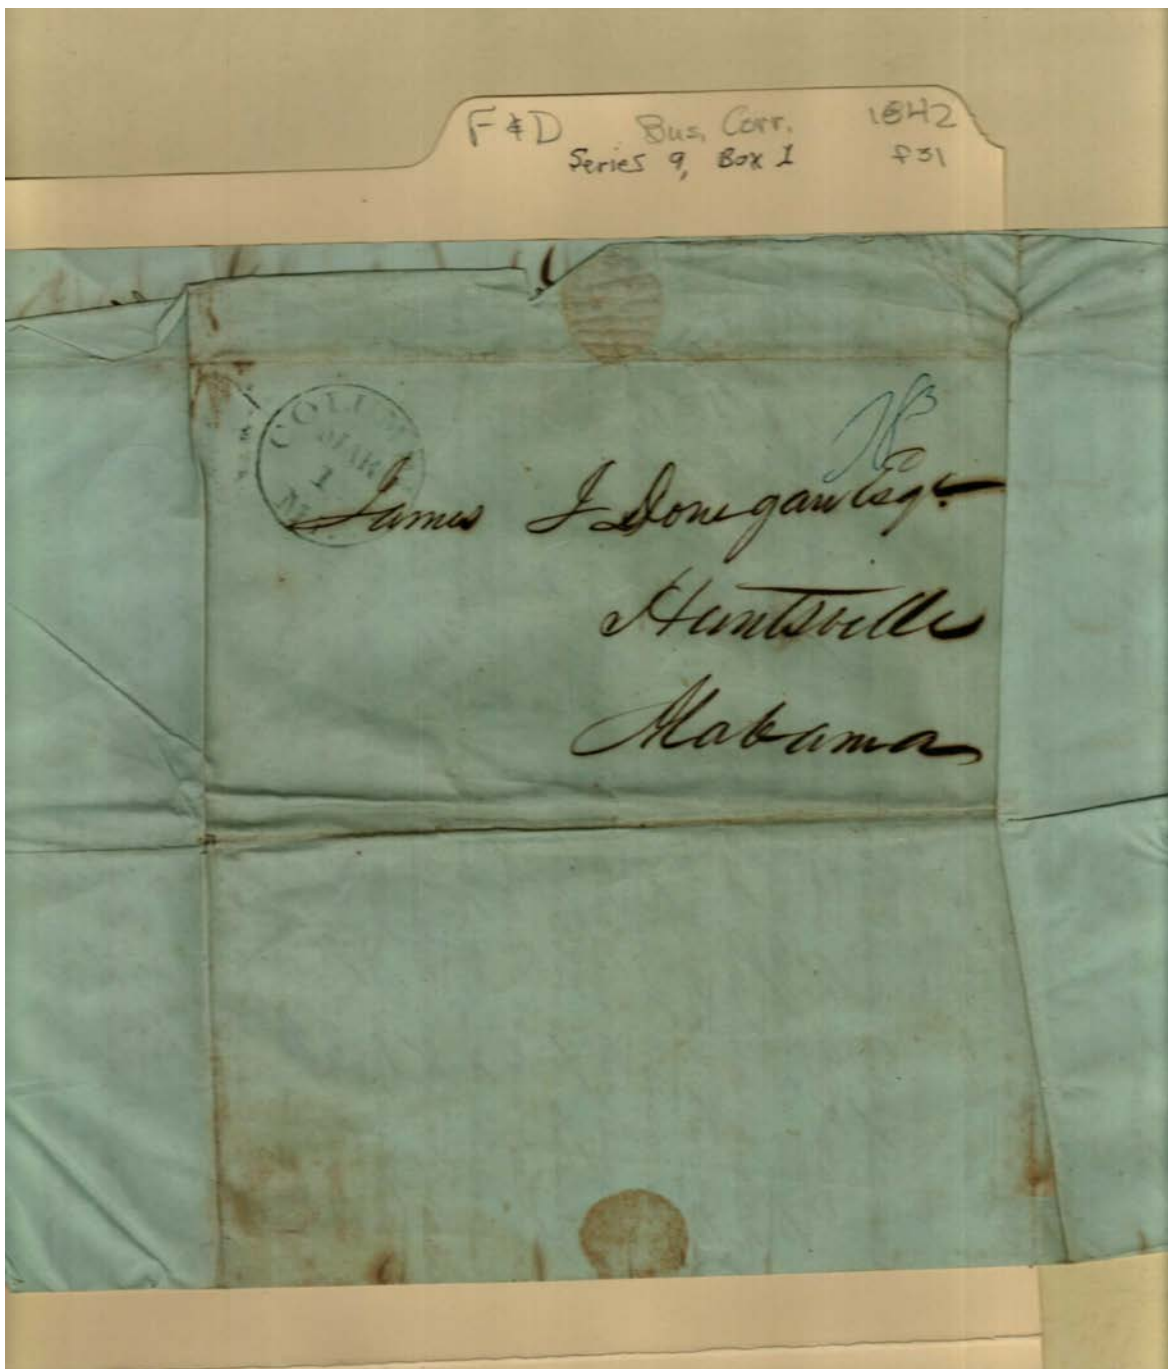 F & D Bus. Corr. 1842
Series 9, Box 1 F31
COLUM
MAR
1
James J Donegan Esqr.
Huntsville
Alabama